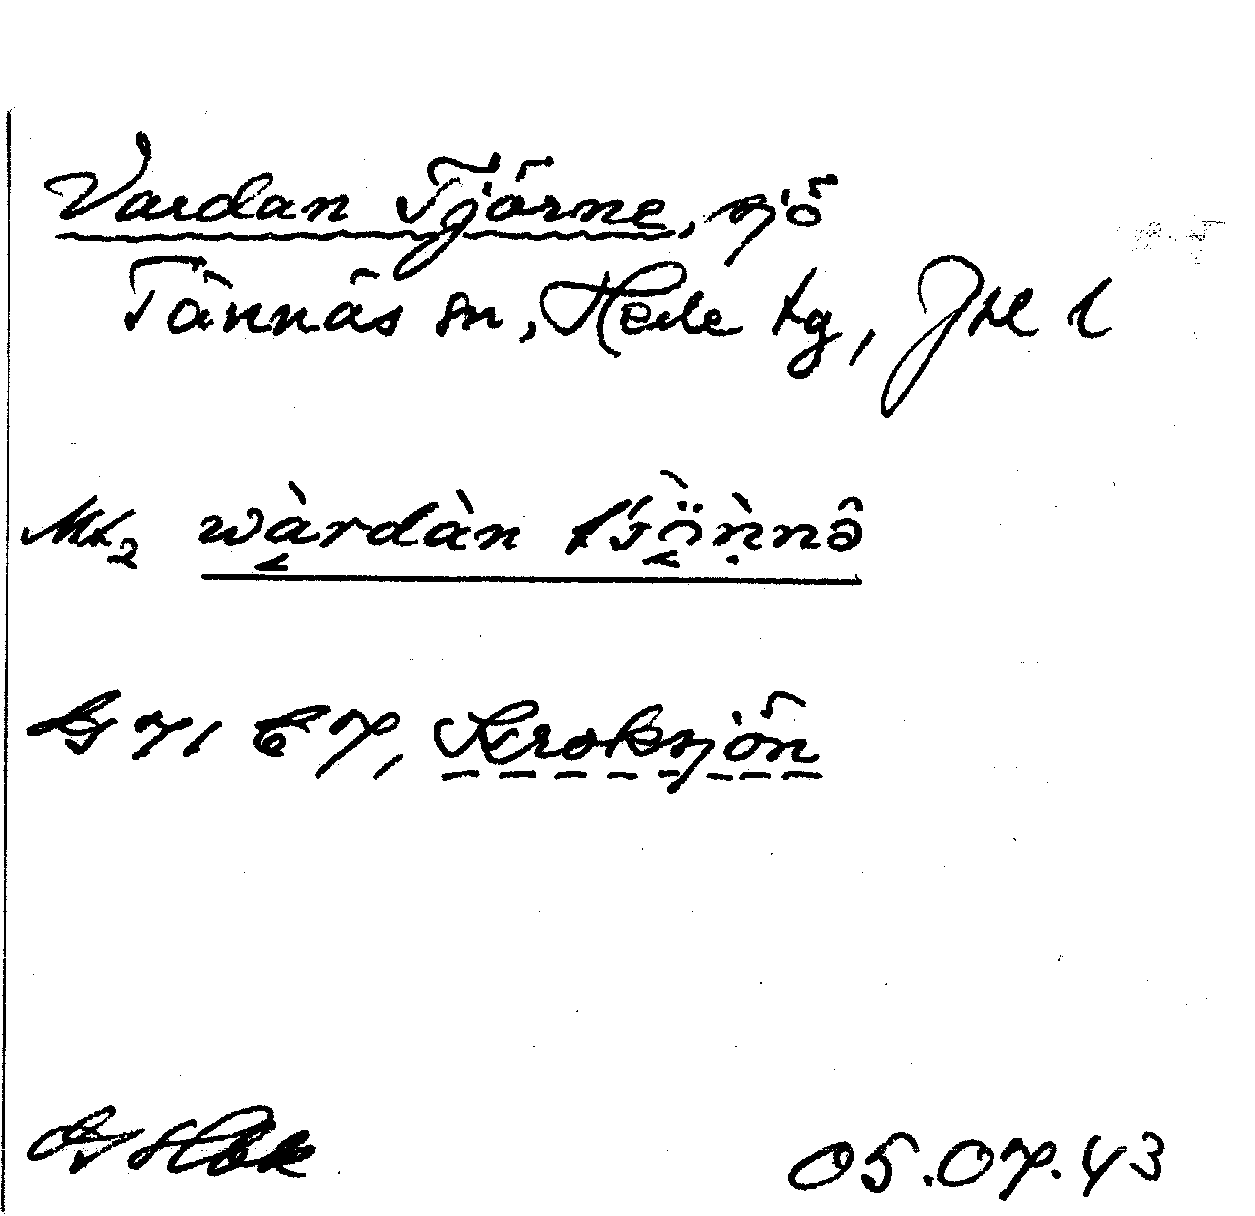 Vardan Tjörne, sjö
Tännäs sn, Hede tg, Jtl l
Mt2 wàrdàn tjö̀ǹnô
71 E 7, Kroksjön
05.07.43